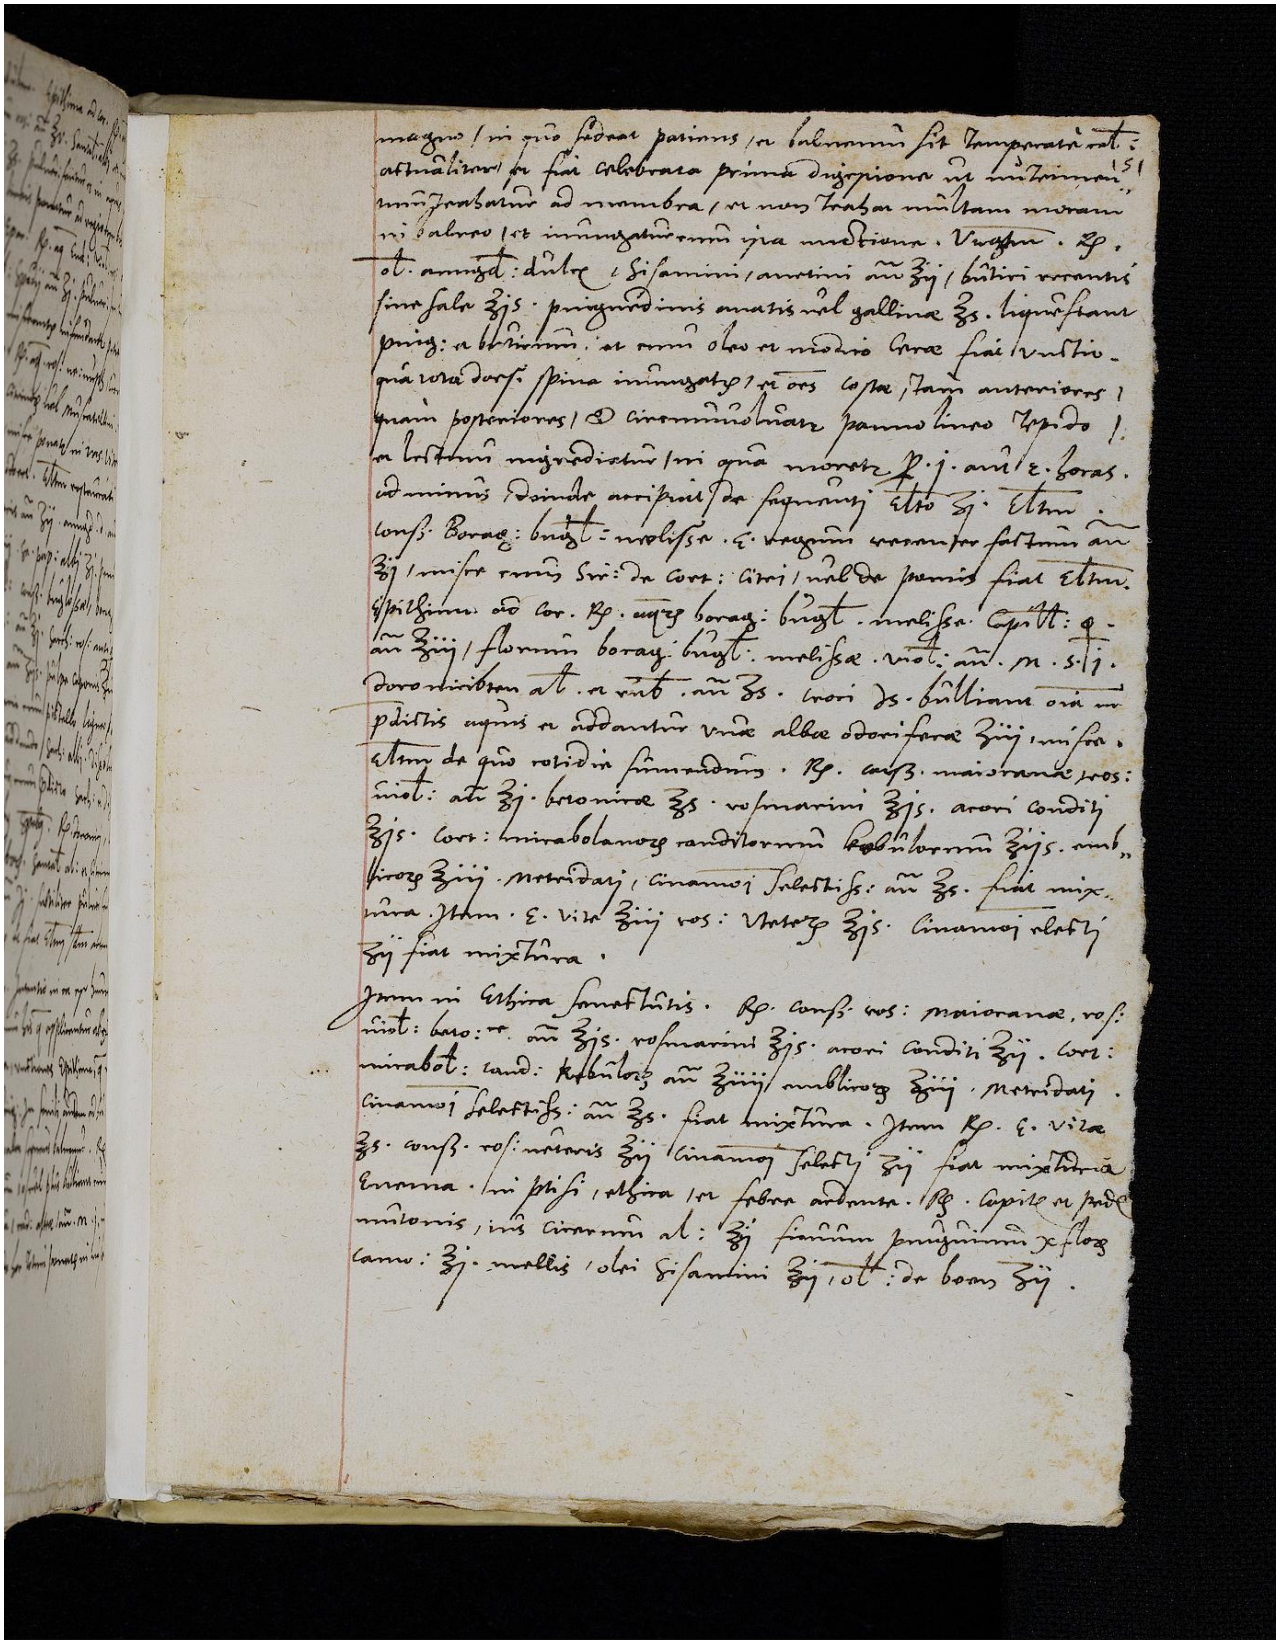 magno / in quo sedeat patiens / et balneum sit temperate cal:
actualiter / et fiat celebrata prima digestione ut nutrimen
tum trahatur ad membra / et non trahat multam moram
in balneo / et inungatur cum ista unctione . Ungtm . ℞ .
ol. amigd: dulc / sisamini / anetini an̄ ʒij / butiri recentis
sine sale ʒjs . pinguedinis anatis vel gallinæ ʒs . liquefiant
ping: et butirum . et cum oleo et modico ceræ fiat unctio .
qua tota dorsi spina inungat / et oēs costæ / tam anteriores /
quam posteriores / & circumvoluat panno lineo tepido /
et lectum ingrediatur / in quo moret p . j . aut 2 . horas .
ad minus / deinde accipiat / de sequenti Elto ʒj . Eltm .
conß . Borag: bugl: melisse . recenter factum an̄
ʒj / misce cum Sir: de cort: citri / vel de pomis fiat Eltm .
Epithima ad cor . ℞ . aqrꝫ borag: bugl . melisse . Capill: ♀ .
an̄ ʒiij / florum borag: bugl: melissæ . viol: an̄ . M . s . j .
al . et rub . an̄ ʒs . croci ℈s . bulliant oīa in
pdictis aquis et addantur vini albi odoriferæ ʒiij , misce .
Eltm de quo cotidie sumendum . ℞ . conß . maioranæ , ros:
viol: an̄ ʒj . betonicæ ʒs . rosmarini ʒjs . acori conditi
ʒjs . cort: mirabolanorꝫ conditorum kebulorum ʒijs . emb
licorꝫ ʒiij . Metridati , cinamōi selectiß: an̄ ʒs . fiat mix
tura . Item . vite ʒiij ros: veterꝫ ʒjs . Cinamōi electi
ʒij fiat mixtura .
Item in Ethica senectutis . ℞ . conß . ros: Maioranæ , ros:
viol: beto:ce . an̄ ʒjs . rosmarini ʒjs . acori conditi ʒij . cort:
mirabol: cond: kebulorꝫ an̄ ʒiiij emblicorꝫ ʒiij . Metridati .
cinamōi selectiß: an̄ ʒs . fiat mixtura . Item ℞ . vitæ
ʒs . conß . ros: veteris ʒij cinamōi selecti ʒij fiat mixtura
Enema . in ptisi , ethica , et febre ardente . ℞ . capit et ped
mutonis , ius cicerum al: ʒij ficuum pinguium x flor
camo: ʒj . mellis , olei sisamini ʒij , ol: de been ʒij .